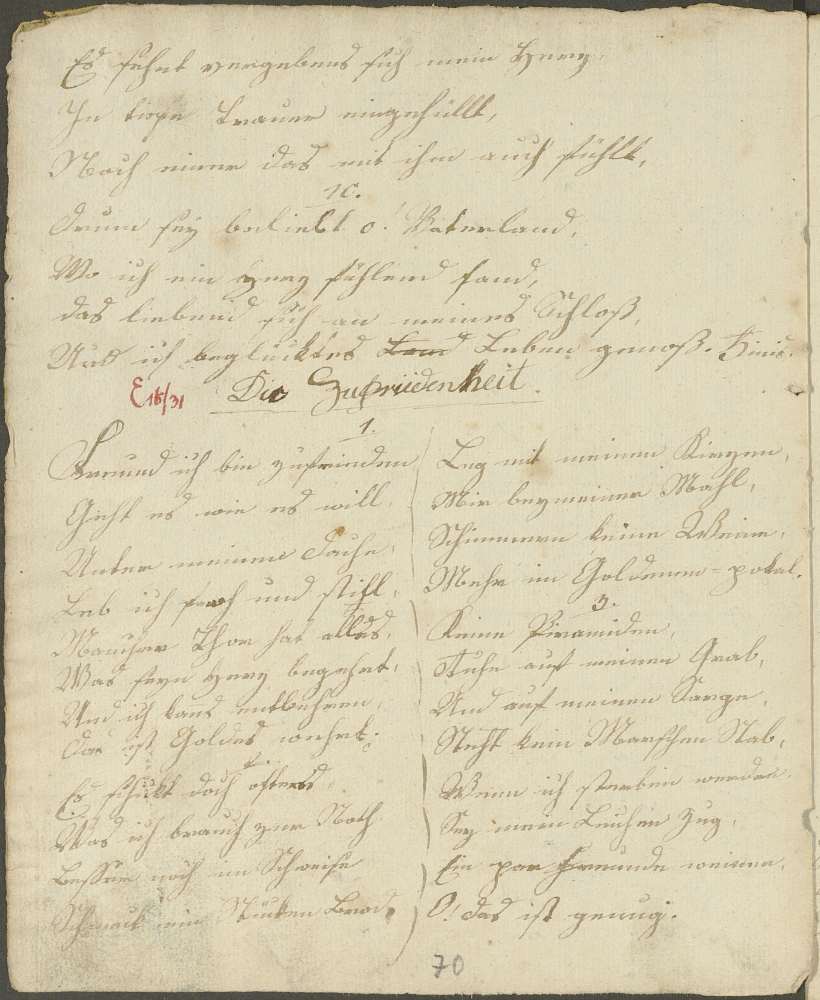 Es sehnt vergebens sich mein Herz,
In tiefe Trauer eingehüllt,
Nach einer das mit ihm auch fühlt,
10.
Drum sey beliebt o! Vaterland,
Wo ich ein Herz fühlend fand,
das liebend sich an meines Schloß,
Und ich beglücktes Leben genoß. Finis.
E 18/31 Die Zufriedenheit.
1.
Freund ich bin zufrieden
Geht es wie es will,
Unter meinem Dache,
Leb ich froh und still,
Mancher Thor hat alles,
Was seyn Herz begehrt,
Und ich kans entbehren,
das ist Goldes wehrt.
2.
Es schickt doch öfters
Was ich brauch zur Noth
Besser noch im Schweiße
Schmeckt ein Brod,
Leg mit meinen
Mir bey meiner Mahl,
Schimmern keine Weine,
Mehr im Goldenen-pokal.
3.
Keine Piramiden,
Stehe auf meinen Grab,
Und auf meinen Sarge,
Steht kein Marschen Stab,
Wenn ich sterben werde,
Sey mein Leichen Zug,
Ein par Freunde weinen,
O! das ist genug.
70